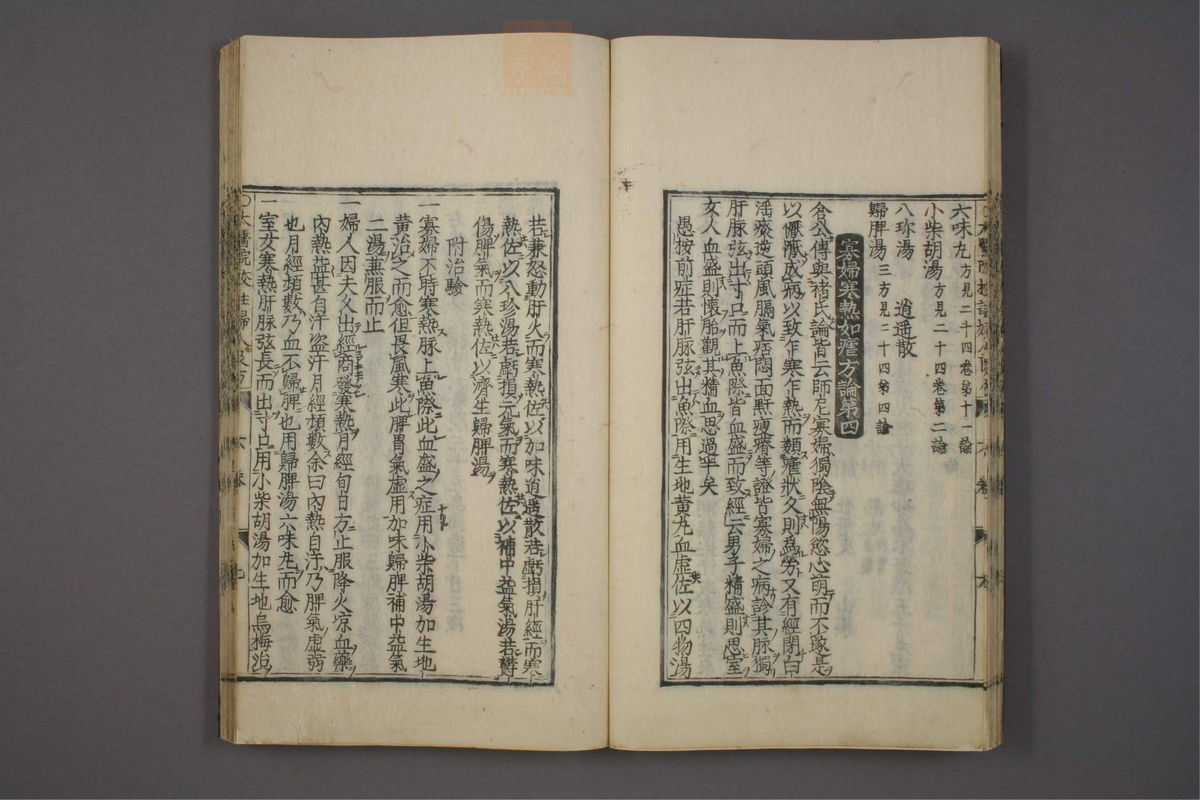 六味丸方見二十四卷第十一論
小柴胡湯方見二十四卷第二論
八珎湯　逍遥散
歸脾湯三方見二十四第四論
寡婦寒熱如瘧方論第四
倉公傳與褚氏論皆云師尼寡婦獨陰無陽慾心萌而不遂是
以懨懨成病以致乍寒乍熱而類瘧狀久則為勞又有經閉白
淫痰逆頭風膈氣痞悶面䵟瘦瘠等證皆寡婦之病診其脉獨
肝脉弦出寸口而上魚際皆血盛而致經云男子精盛則思室
女人血盛則懷胎觀其精血思過半矣
愚按前症若肝脉弦出魚際用生地黄丸血虚佐以四物湯
若兼怒動肝火而寒熱佐以加味逍遥散若虧損肝經而寒
熱佐以八珍湯若虧損元氣而寒熱佐以補中益氣湯若欝
傷脾氣而寒熱佐以濟生歸脾湯
附治驗
一寡婦不時寒熱脉上魚際此血盛之症用小柴胡湯加生地
黄治之而愈但畏風寒此脾胃氣虚用加味歸脾補中益氣
二湯兼服而止
一婦人因夫久出經商發寒熱月經旬日方止服降火凉血藥
内熱益甚自汗盗汗月經頻數余曰内熱自汗乃脾氣虚弱
也月經頻數乃血不歸脾也用歸脾湯六味丸而愈
一室女寒熱肝脉弦長而出寸口用小柴胡湯加生地烏梅治